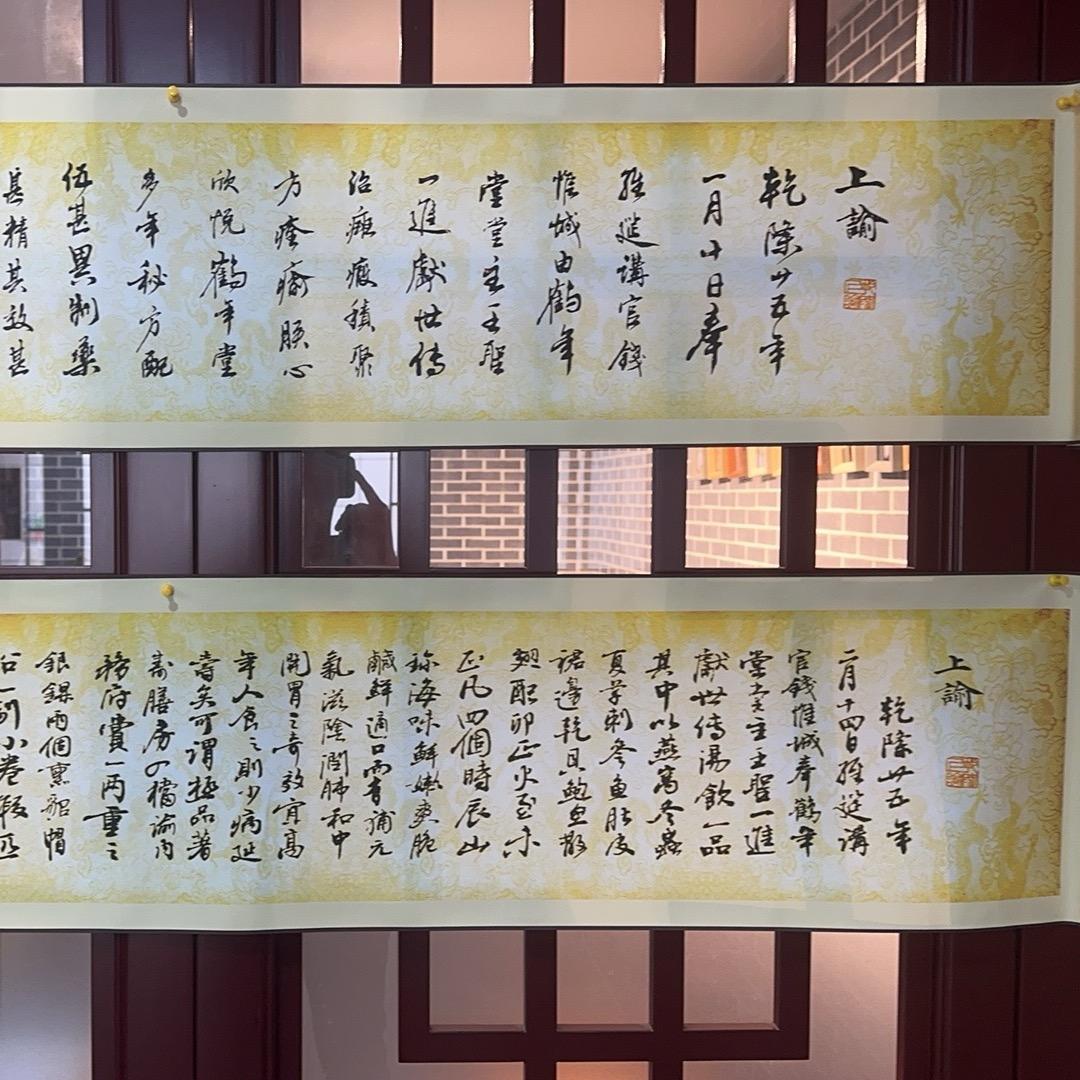 上諭
乾隆廿五年
一月十日奉
經筵講官錢
惟城由鶴年
堂堂主王聖
一進獻世傳
治癥瘕積聚
方痊瘉朕心
欣悅鶴年堂
多年秘方配
伍甚異制藥
甚精其效甚
上諭
乾隆廿五年
二月十四日經筵講
官錢惟城奉鶴年
堂堂主王聖一進
獻世傳湯飲一品
其中以燕窩冬蟲
夏草刺參魚肚皮
裙邊乾貝鮑魚散
翅配卯正火至亦
正凡四個時辰山
珍海味鮮嫩爽脆
鹹鮮適口而有補元
氣滋陰潤肺和中
開胃之奇效宜高
年人食之則少病延
壽矣可謂極品著
壽膳房の檔諭內
務府賞一兩重之
銀錁兩個熏貂帽